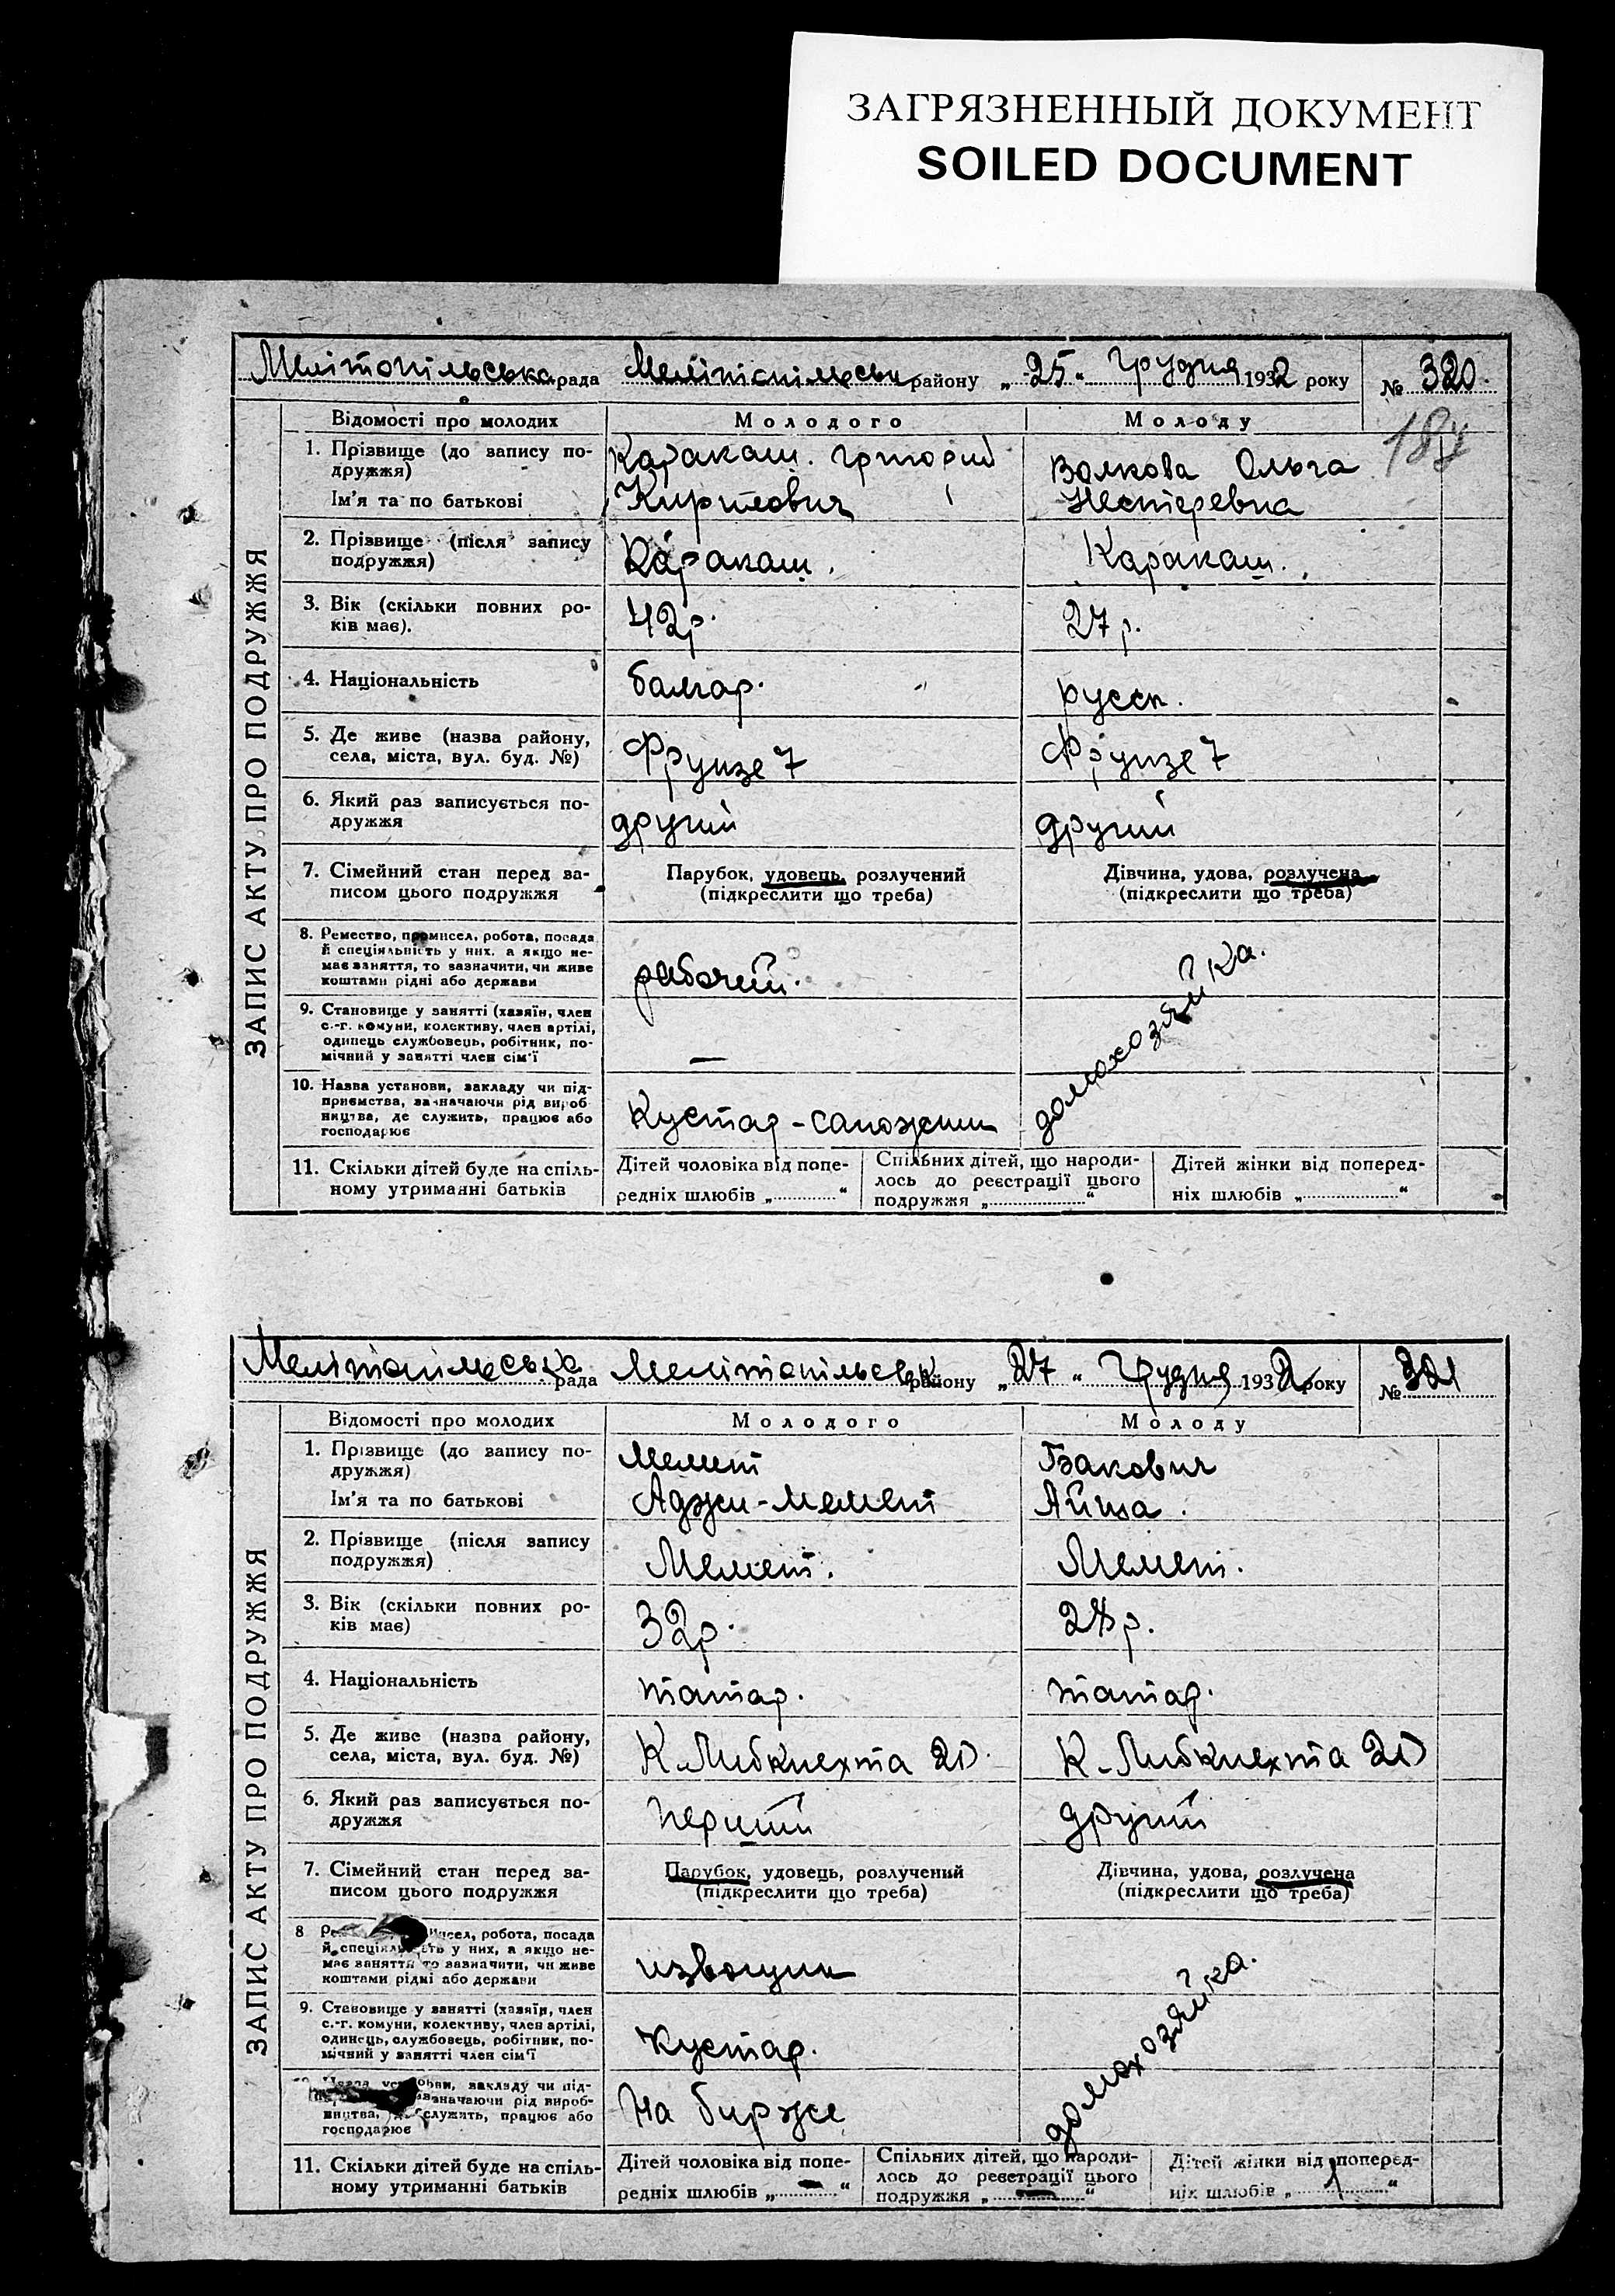 ЗАГРЯЗНЕННЫЙ ДОКУМЕНТ
SOILED DOCUMENT
Мелітопільська рада Мелітопільськ району „25“ Грудня 1932 року № 320.
ЗАПИС АКТУ ПРО ПОДРУЖЖЯ
Відомості про молодих Молодого Молоду
1. Прізвище (до запису по-
дружжя)
Каракаш. Григорий Волкова Ольга
Ім'я та по батькові Кирилович Нестеревна
2. Прізвище (після запису
подружжя)
Каракаш. Каракаш.
3. Вік (скільки повних ро-
ків має).
42р. 27р.
4. Національність болгар. русск.
5. Де живе (назва району,
села, міста, вул. буд. №)
Фрунзе 7 Фрунзе 7
6. Який раз записується по-
дружжя
другий другий
7. Сімейний стан перед за-
писом цього подружжя
Парубок, удовець, розлучений
(підкреслити що треба)
Дівчина, удова, розлучена
(підкреслити що треба)
8. Ремество, промисел, робота, посада
й спеціяльність у них, а якщо не-
має заняття, то зазначити, чи живе
коштами рідні або держави
рабочий. домохозяйка.
9. Становище у занятті (хазяїн, член
с.-г. комуни, колективу, член артілі,
одинець службовець, робітник, по-
мічний у занятті член сім'ї
—
10. Назва установи, закладу чи під-
приємства, зазначаючи рід вироб-
ництва, де служить, працює або
господарює
Кустар-сапожник
11. Скільки дітей буде на спіль-
ному утриманні батьків
Дітей чоловіка від попе-
редніх шлюбів „ “
Спільних дітей, що народи-
лось до реєстрації цього
подружжя „ “
Дітей жінки від поперед-
ніх шлюбів „ “
Мелітопільська рада Мелітопільськ району „27“ Грудня 1932 року № 321
ЗАПИС АКТУ ПРО ПОДРУЖЖЯ
Відомості про молодих Молодого Молоду
1. Прізвище (до запису по-
дружжя)
Мемет Бакович
Ім'я та по батькові Аджи-Мемет Айша.
2. Прізвище (після запису
подружжя)
Мемет. Мемет.
3. Вік (скільки повних ро-
ків має)
32р. р.
4. Національність татар. татар.
5. Де живе (назва району,
села, міста, вул. буд. №)
К.Либкнехта 20 К-Либкнехта 20
6. Який раз записується по-
дружжя
перший другий
7. Сімейний стан перед за-
писом цього подружжя
Парубок, удовець, розлучений
(підкреслити що треба)
Дівчина, удова, розлучена
(підкреслити що треба)
8 робота, посада
й спеціяльність у них, а якщо не-
має заняття то зазначити, чи живе
коштами рідні або держави
извощик домохозяйка.
9. Становище у занятті (хазяїн, член
с.-г. комуни, колективу, член артілі,
одинець, службовець, робітник, по-
мічний у занятті член сім'ї
Кустар.
закладу чи під-
зазначаючи рід вироб-
ництва, де служить, працює або
господарює
На бирже
11. Скільки дітей буде на спіль-
ному утриманні батьків
Дітей чоловіка від попе-
редніх шлюбів „—“
Спільних дітей, що народи-
лось до реєстрації цього
подружжя „—“
Дітей жінки від поперед-
ніх шлюбів „1“